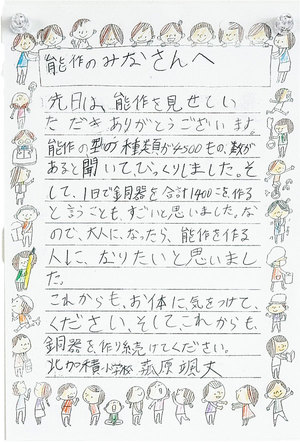 能作のみなさんへ
先日は、能作を見せしい
ただきありがとうございます。
能作の型の種類が4500もの、数が
あると聞いてびっくりしました。そ
して、1日で銅器を合計1400こを作る
と言うことも、すごいと思いました。な
ので、大人に、なったら、能作を作る
人に、なりたいと思いまし
た。
これからも、お体に、気をつけて、
ください、そして、これからも、
銅器を、作り続けてください。
北加積小学校 萩原颯大